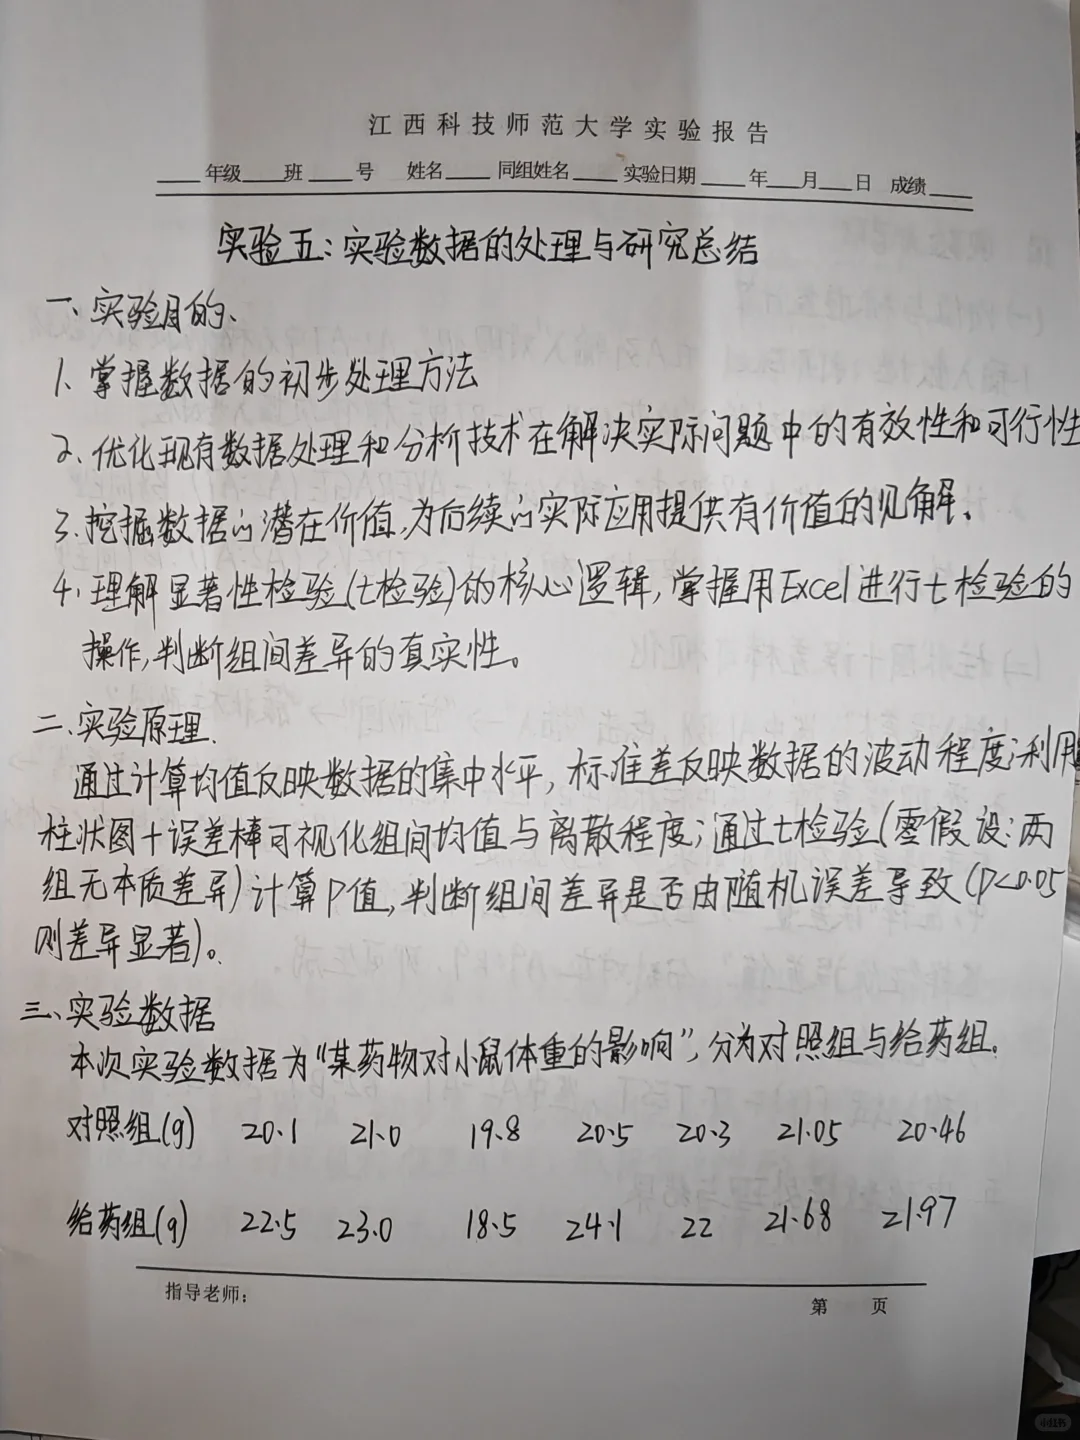 江西科技师范大学实验报告
____年级____班____号 姓名____同组姓名____实验日期____年___月___日 成绩____
实验五:实验数据的处理与研究总结
一、实验目的、
1、掌握数据的初步处理方法
2、优化现有数据处理和分析技术在解决实际问题中的有效性和可行性
3、挖掘数据的潜在价值,为后续的实际应用提供有价值的见解、
4、理解显著性检验(t检验)的核心逻辑,掌握用Excel进行t检验的
操作,判断组间差异的真实性。
二、实验原理、
通过计算均值反映数据的集中水平,标准差反映数据的波动程度;利用
柱状图+误差棒可视化组间均值与离散程度;通过t检验(零假设:两
组无本质差异)计算P值,判断组间差异是否由随机误差导致(P<0.05
则差异显著)。
三、实验数据
本次实验数据为“某药物对小鼠体重的影响”,分为对照组与给药组.
对照组(g) 20.1 21.0 19.8 20.5 20.3 21.05 20.46
给药组(g) 22.5 23.0 18.5 24.1 22 21.68 21.97
指导老师:
第 页
小红书